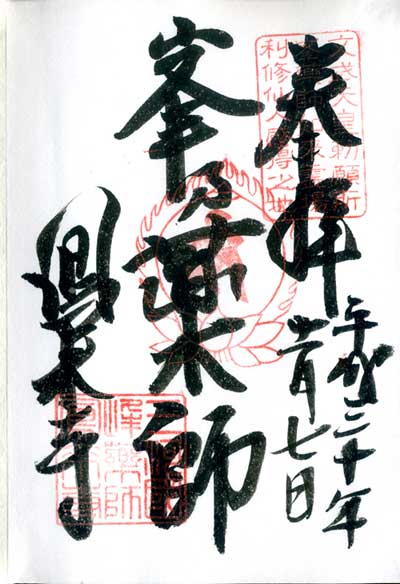 奉拝
文武天皇勅願所
利修仙人感得之地
平成二十年
月七日
峯乃薬師
鳳来寺
峯薬師